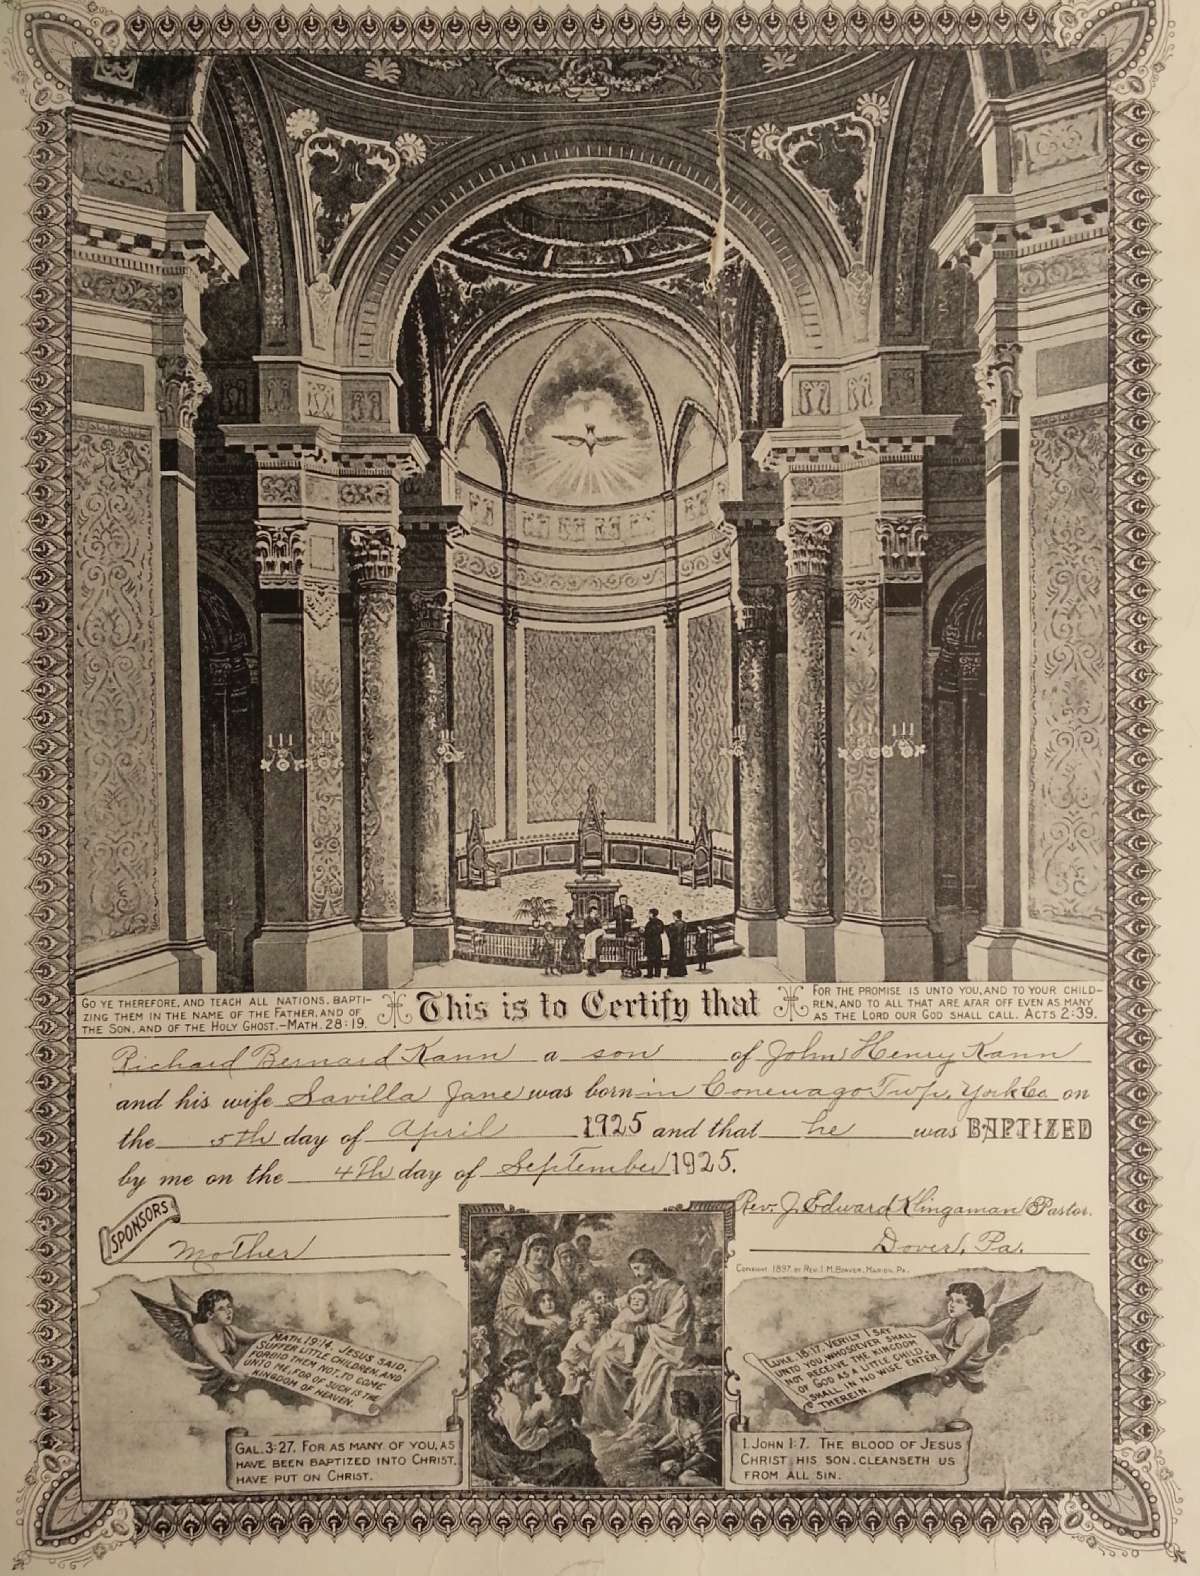 GO YE THEREFORE, AND TEACH ALL NATIONS, BAPTI-
ZING THEM IN THE NAME OF THE FATHER, AND OF
THE SON, AND OF THE HOLY GHOST.—MATH. 28:19.
This is to Certify that
FOR THE PROMISE IS UNTO YOU, AND TO YOUR CHILD-
REN, AND TO ALL THAT ARE AFAR OFF EVEN AS MANY
AS THE LORD OUR GOD SHALL CALL. ACTS 2:39.
Richard Bernard Kann a son of John Henry Kann
and his wife Savilla Jane was born in Conewago Twp. York Co. on
the 5th day of April 1925 and that he was BAPTIZED
by me on the 4th day of September 1925.
SPONSORS
Mother
Rev. J. Edward Klingaman Pastor.
Dover, Pa.
COPYRIGHT 1897 BY REV. I. M. BEAVER, MARION, PA.
MATH. 19:14. JESUS SAID,
SUFFER LITTLE CHILDREN, AND
FORBID THEM NOT, TO COME
UNTO ME, FOR OF SUCH IS THE
KINGDOM OF HEAVEN.
LUKE 18:17. VERILY I SAY
UNTO YOU, WHOSOEVER SHALL
NOT RECEIVE THE KINGDOM
OF GOD AS A LITTLE CHILD,
SHALL IN NO WISE ENTER
THEREIN.
GAL. 3:27. FOR AS MANY OF YOU, AS
HAVE BEEN BAPTIZED INTO CHRIST,
HAVE PUT ON CHRIST.
1. JOHN 1:7. THE BLOOD OF JESUS
CHRIST, HIS SON, CLEANSETH US
FROM ALL SIN.